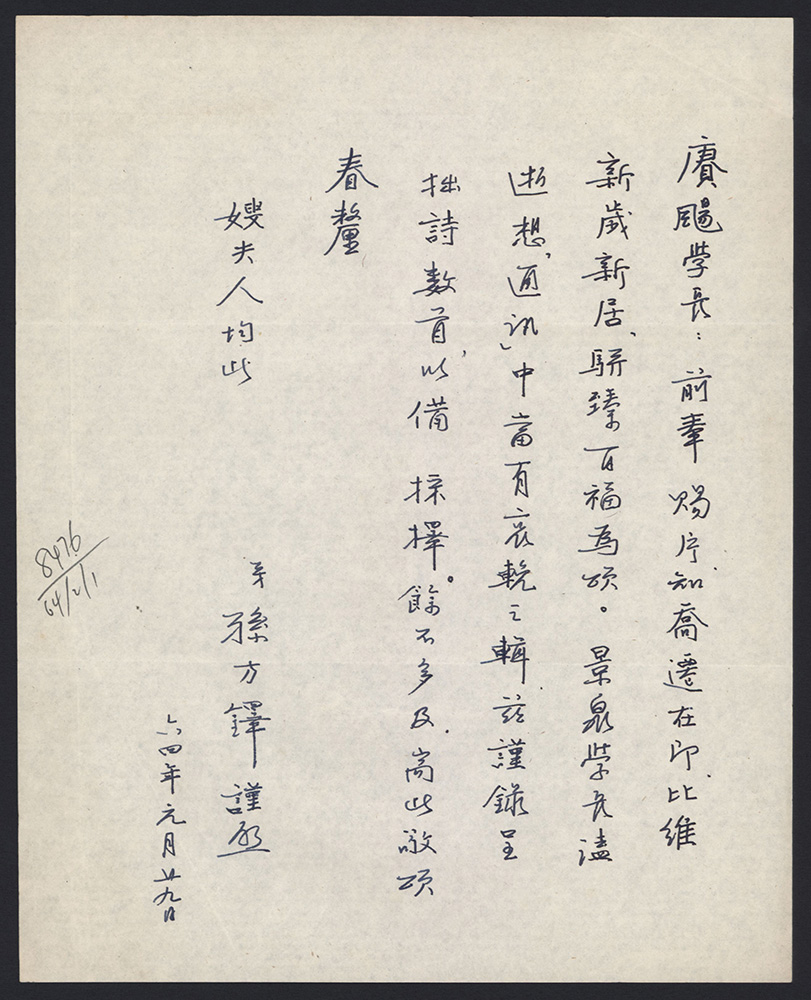 賡颺學長：前奉 賜片，知喬遷在即，比維
新歲新居、駢臻百福為頌。景泉學長溘
逝，想「通訊」中當有哀輓之輯，茲謹錄呈
拙詩數首，以備 採擇。餘不多及，耑此敬頌
春釐
嫂夫人均此
弟 孫方鐸 謹啟
六四年元月廿九日
8476
64/2/1